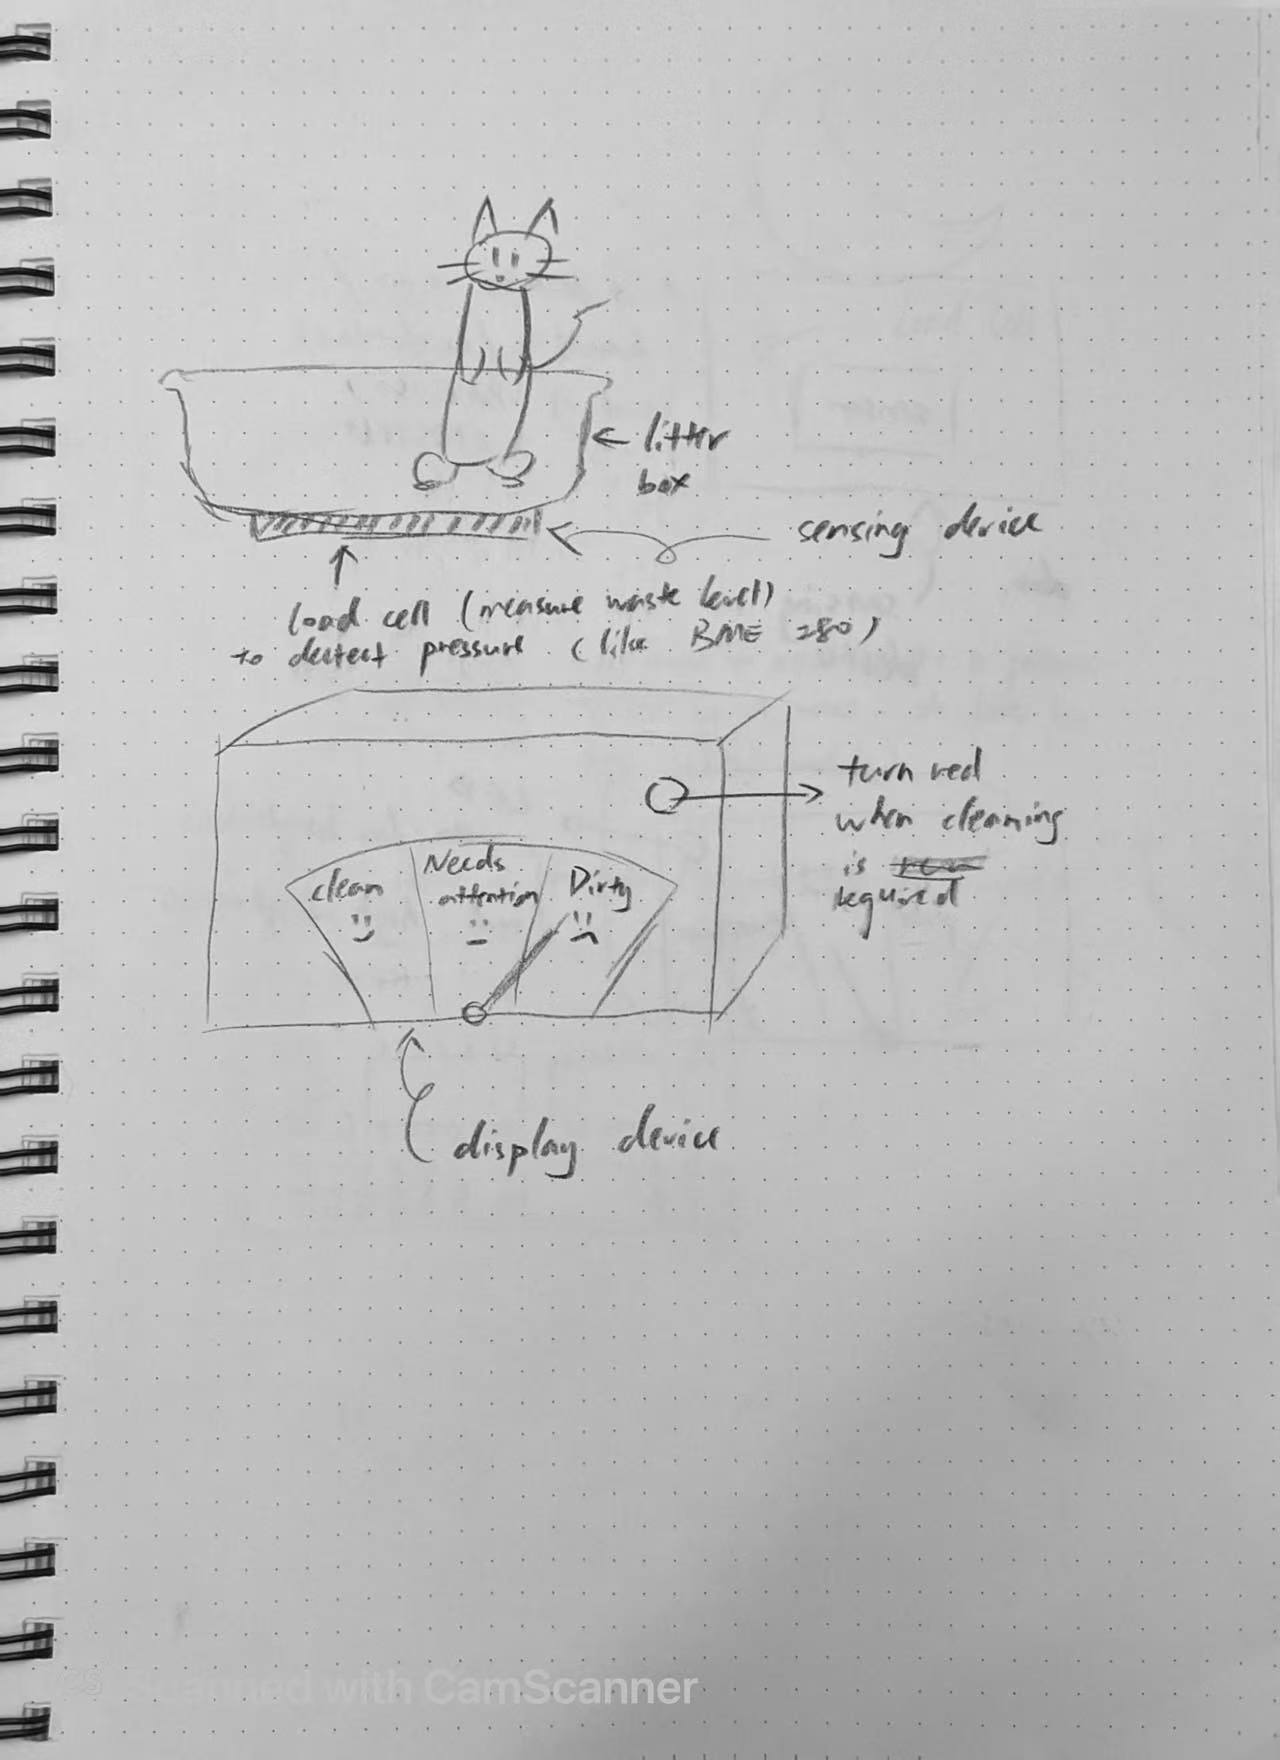 ← litter
box
sensing device
load cell (measure waste level)
to detect pressure (like BME 280)
turn red
when cleaning
is
required
clean
Needs
attention
Dirty
display device
Scanned with CamScanner